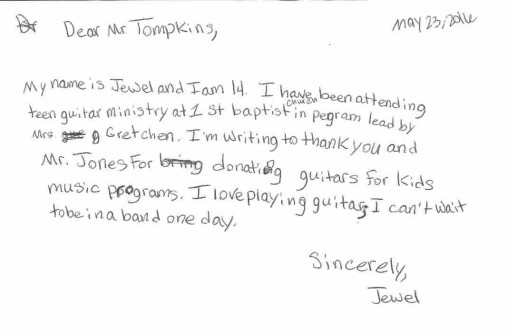 May 23, 2016
Dear Mr Tompkins,
My name is Jewel and I am 14. I have been attending
teen guitar ministry at 1st baptist church in pegram lead by
Mrs. Gretchen. I'm writing to thank you and
Mr. Jones for donating guitars for kids
music programs. I love playing guitar, I can't wait
to be in a band one day.
Sincerely,
Jewel